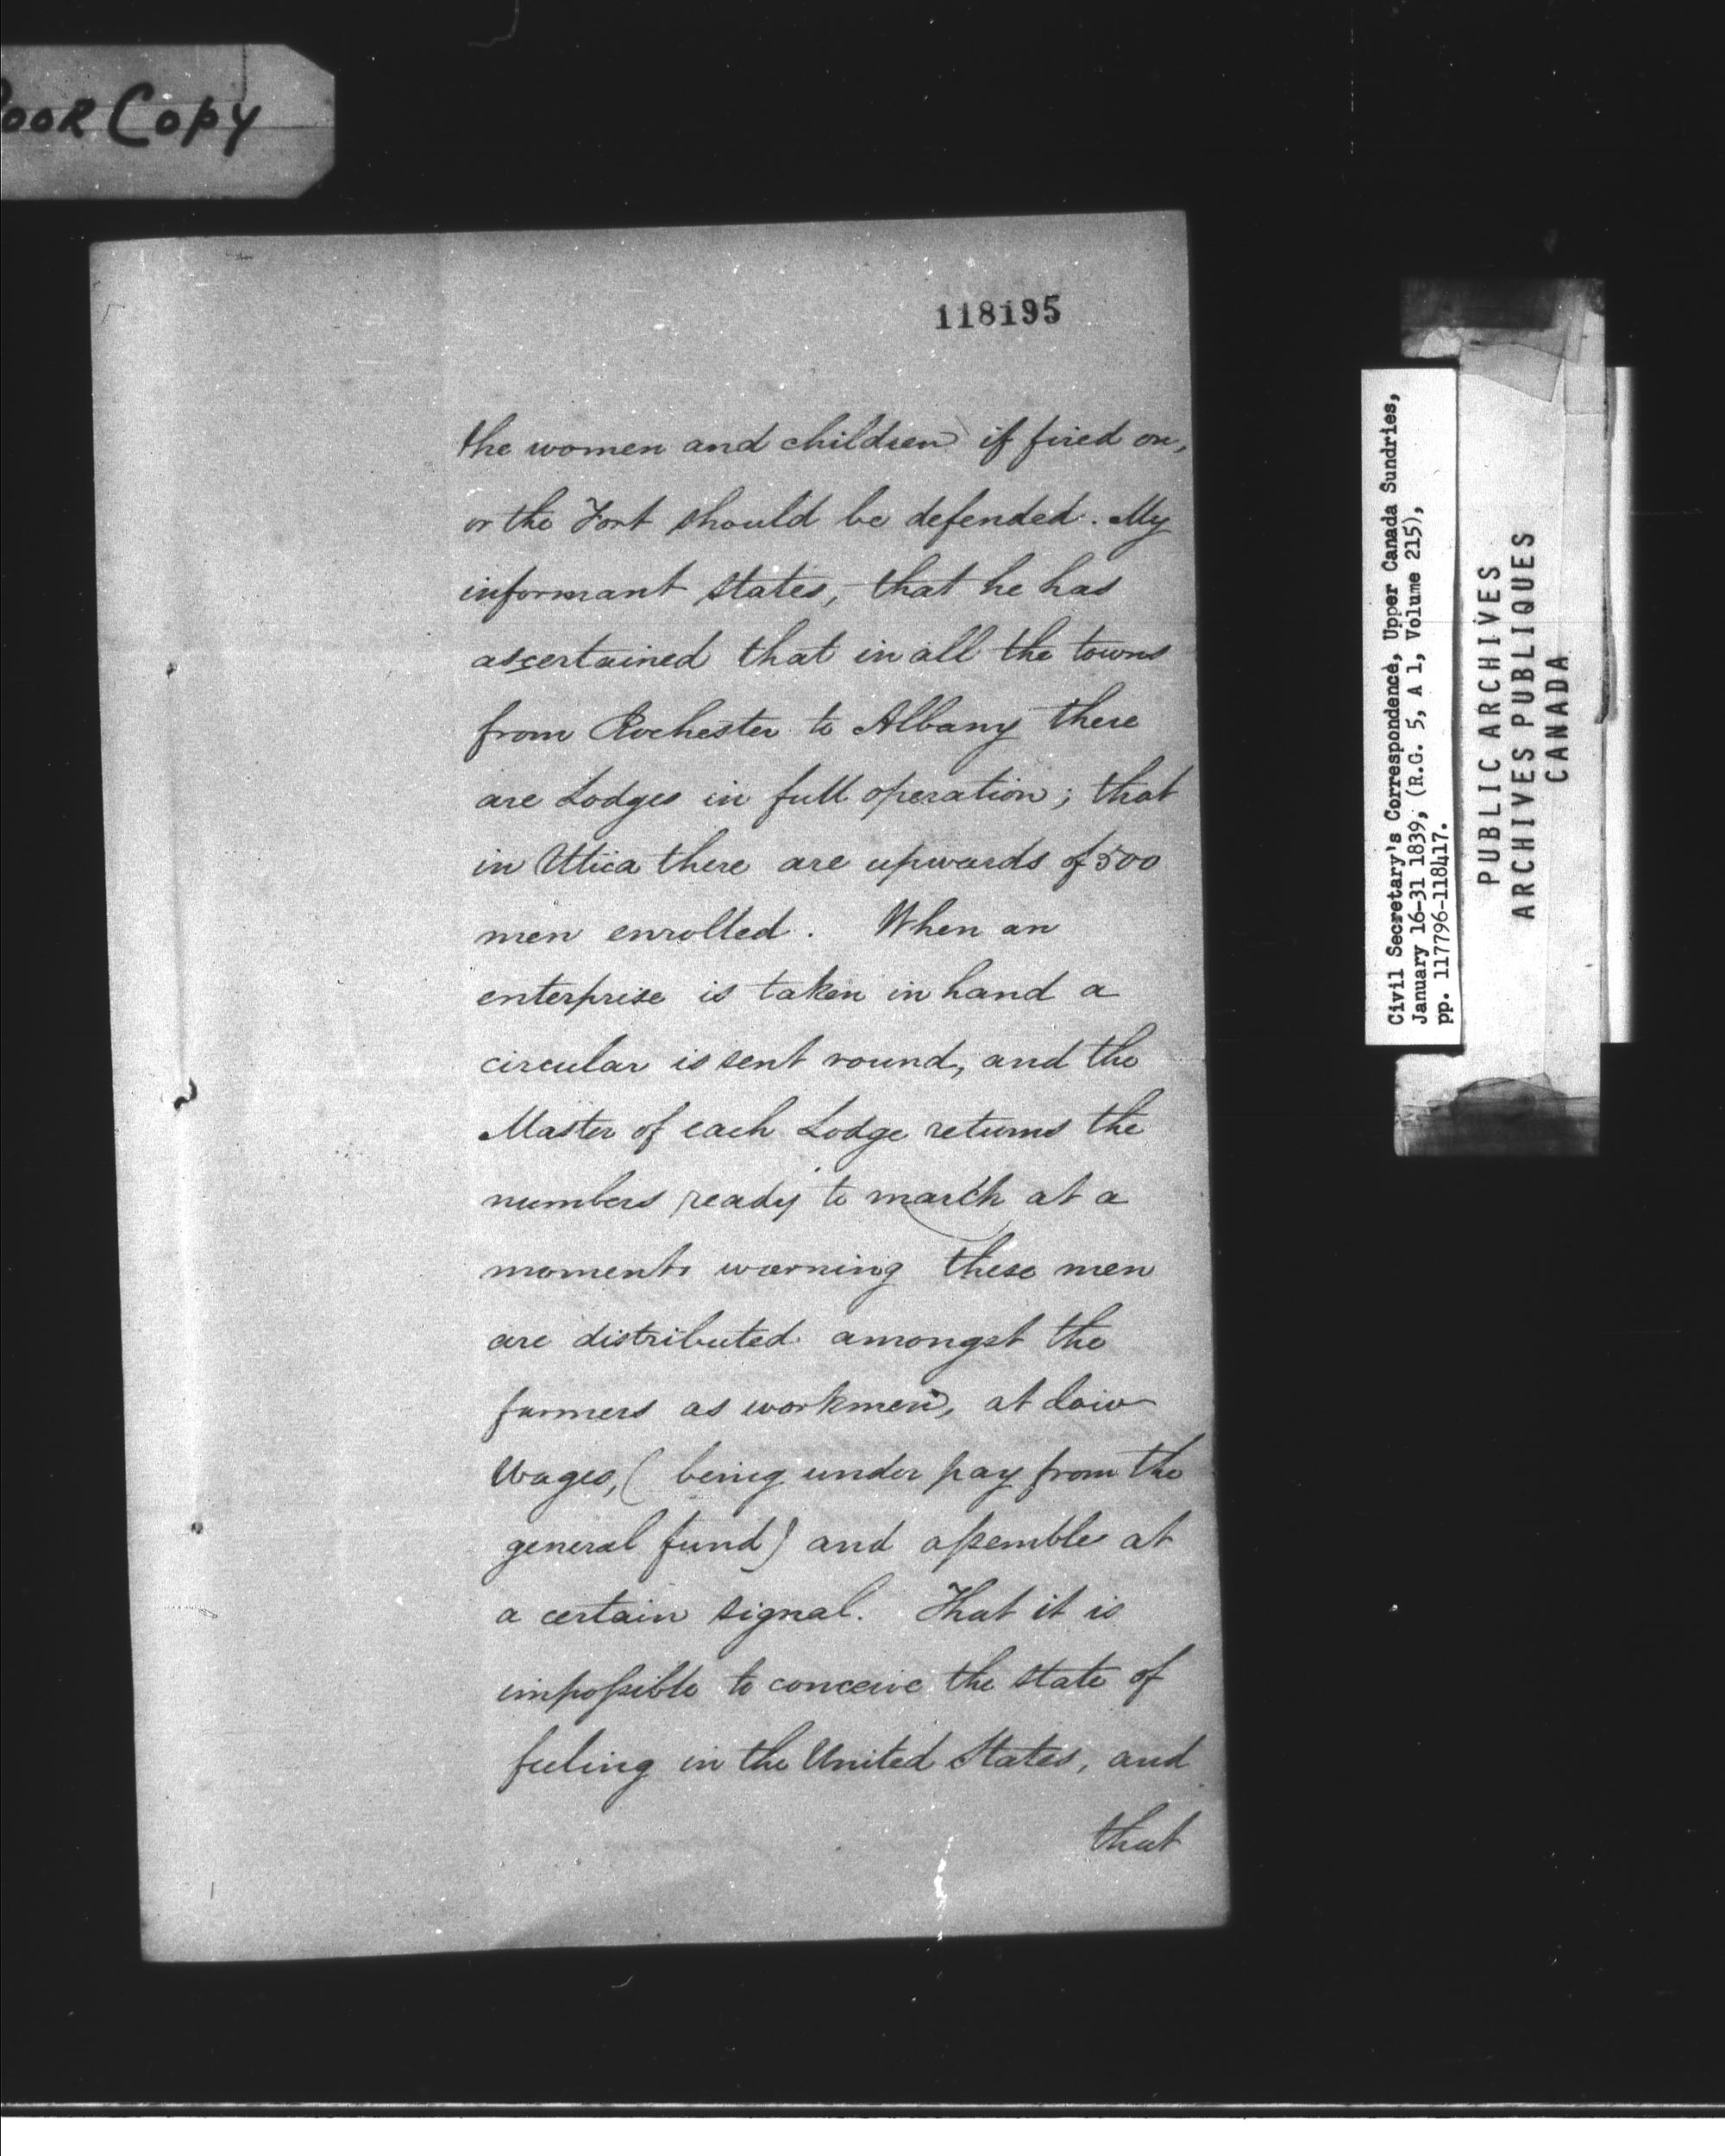 Poor Copy
118195
the women and children if fired on,
or the Fort should be defended. My
informant states, that he has
ascertained that in all the towns
from Rochester to Albany there
are Lodges in full operation; that
in Utica there are upwards of 500
men enrolled. When an
enterprise is taken in hand a
circular is sent round, and the
Master of each Lodge returns the
numbers ready to march at a
moments warning these men
are distributed amongst the
farmers as workmen, at low
wages, (being under pay from the
general fund) and assemble at
a certain signal. That it is
impossible to conceive the state of
feeling in the United States, and
that
Civil Secretary's Correspondence, Upper Canada Sundries,
January 16-31 1839, (R.G. 5, A 1, Volume 215),
pp. 117796-118417.
PUBLIC ARCHIVES
ARCHIVES PUBLIQUES
CANADA